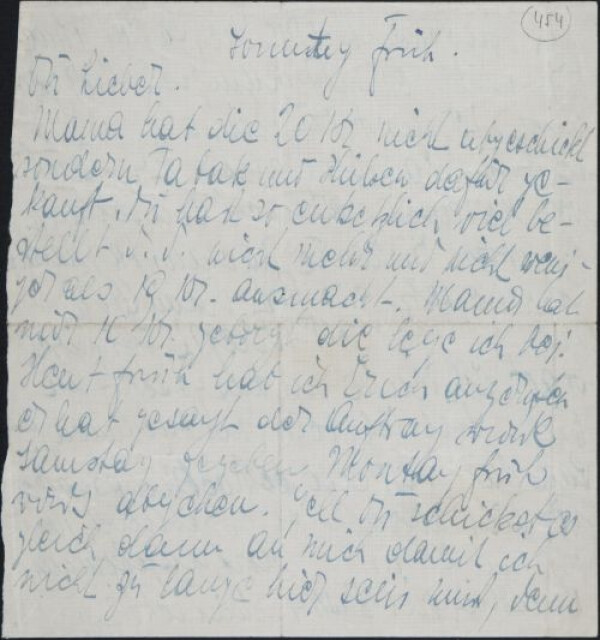 454
Sonntag Früh.
Du Lieber.
Mama hat die 20 Kr. nicht abgeschickt
sondern Tabak und Hülsen dafür ge-
kauft. Du hast so entsetzlich viel be-
stellt d. d. nicht mehr und nicht weni-
ger als 19 Kr. ausmacht. Mama hat
mir 10 Kr. geborgt die lege ich bei.
Heut früh hab ich Erich angerufen
er hat gesagt der Auftrag wird
Samstag gegeben Montag früh
wird's abgehen. Gell Du schickst es
gleich dann an mich damit ich
nicht zu lange hier sein muß, denn